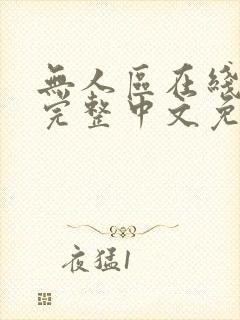 無人區在綫
完整中文免
夜猛1